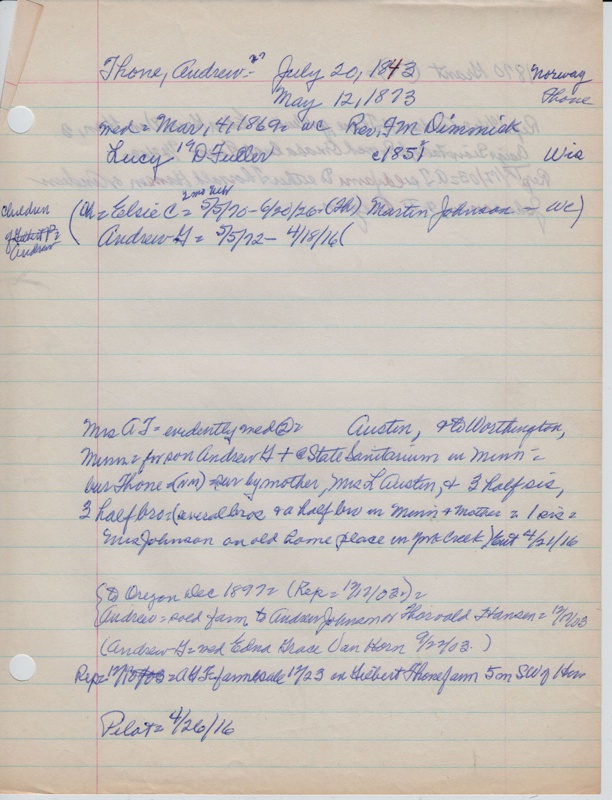 Thone, Andrew = July 20, 1843 Norway
May 12, 1873 Thone
med = Mar, 4, 1869 = wc Rev, F M Dimmick
Lucy D Fuller c1851 Wis
Children of Andrew
(Ch = Elsie C = 5/5/70 - 6/20/20 = Martin Johnson - wc)
Andrew G = 5/5/72 - 4/18/16 (
Mrs A T = evidently med ② = Austin, & to Worthington,
Minn = for son Andrew G + @ State Sanitarium in Minn =
bur Thone = sur by mother, Mrs L Austin, & 3 half sis,
3 half bro = (several bros & a half bro in Minn & Mother = 1 sis =
Mrs Johnson on old home place in York Creek) Ext 4/21/16
{to Oregon Dec 1897 = (Rep = 12/17/03 =) =
Andrew = sold farm to Andrew Johnson & Thorvald Hansen = 12/17/03
(Andrew G = med Edna Grace Van Horn 9/22/03.)
Rep = 12/10/03 = A G T = farm sale 12/23 on Gilbert Thone farm 5 m SW of
Pilot = 4/26/16